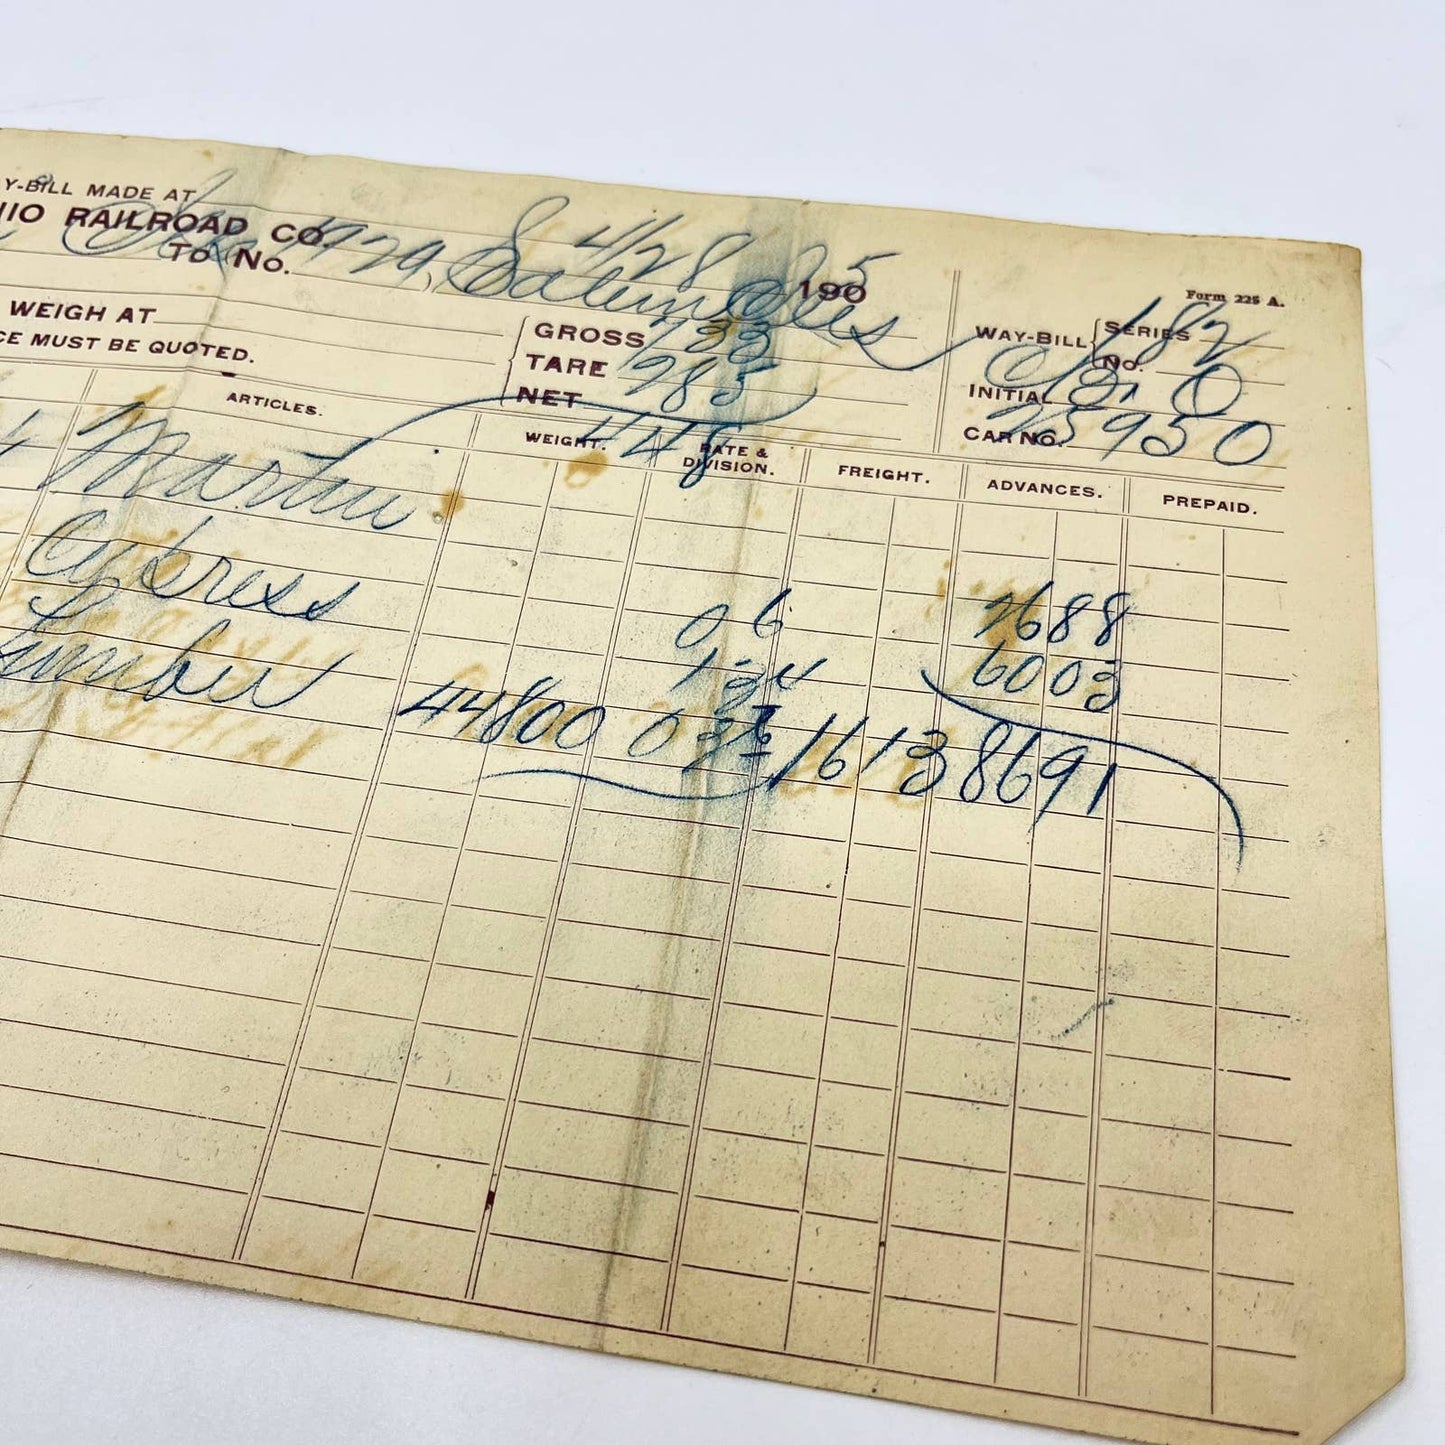 Y-BILL MADE AT
HIO RAILROAD CO. 4/28 1905
TO NO. Salem
Form 225 A.
WEIGH AT
CE MUST BE QUOTED.
GROSS 733
TARE 285
NET 448
WAY-BILL SERIES 182
NO.
INITIAL B. O
CAR NO. 75950
ARTICLES. WEIGHT. RATE & DIVISION. FREIGHT. ADVANCES. PREPAID.
Martin
Cypress 06 2688
Lumber 6003
44800 16138691